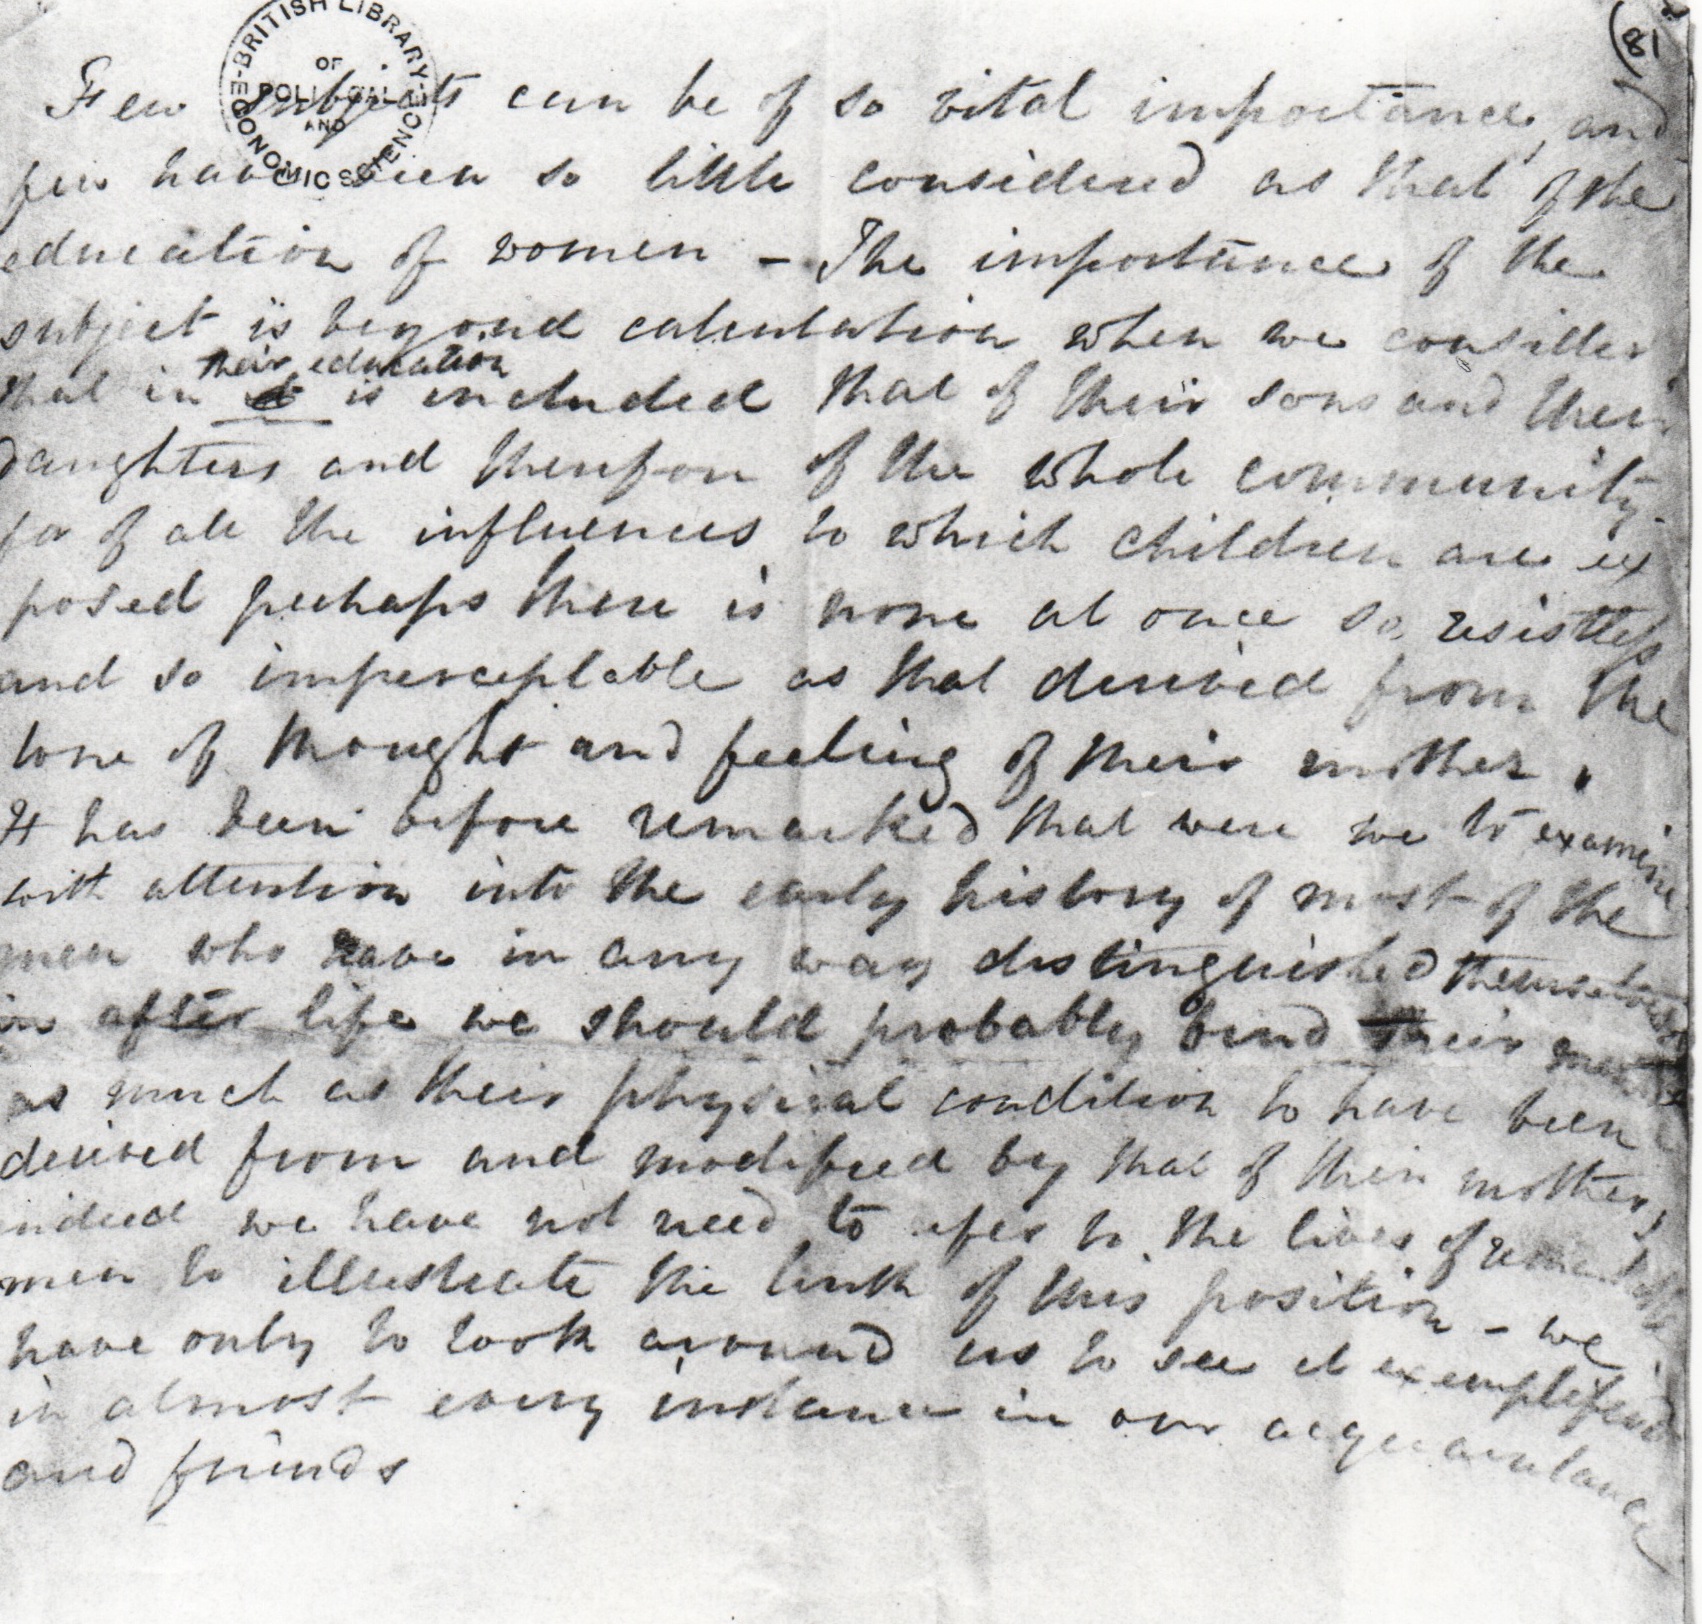 BRITISH LIBRARY OF POLITICAL AND ECONOMIC SCIENCE
(81
Few subjects can be of so vital importance, and
few have been so little considered as that of the
education of women – The importance of the
subject is beyond calculation when we consider
their education
that in is included that of their sons and their
daughters and therefore of the whole community
for of all the influences to which children are ex
posed perhaps there is none at once so resistless
and so imperceptable as that derived from the
tone of thought and feeling of their mother.
It has been before remarked that were we to examine
with attention into the early history of most of the
men who have in any way distinguished themselves
in after life we should probably find their
as much as their physical condition to have been
derived from and modified by that of their mothers,
indeed we have not need to refer to the lives of remarkable
men to illustrate the truth of this position – we
have only to look around us to see it exemplified
in almost every instance in our acquaintance
and friends